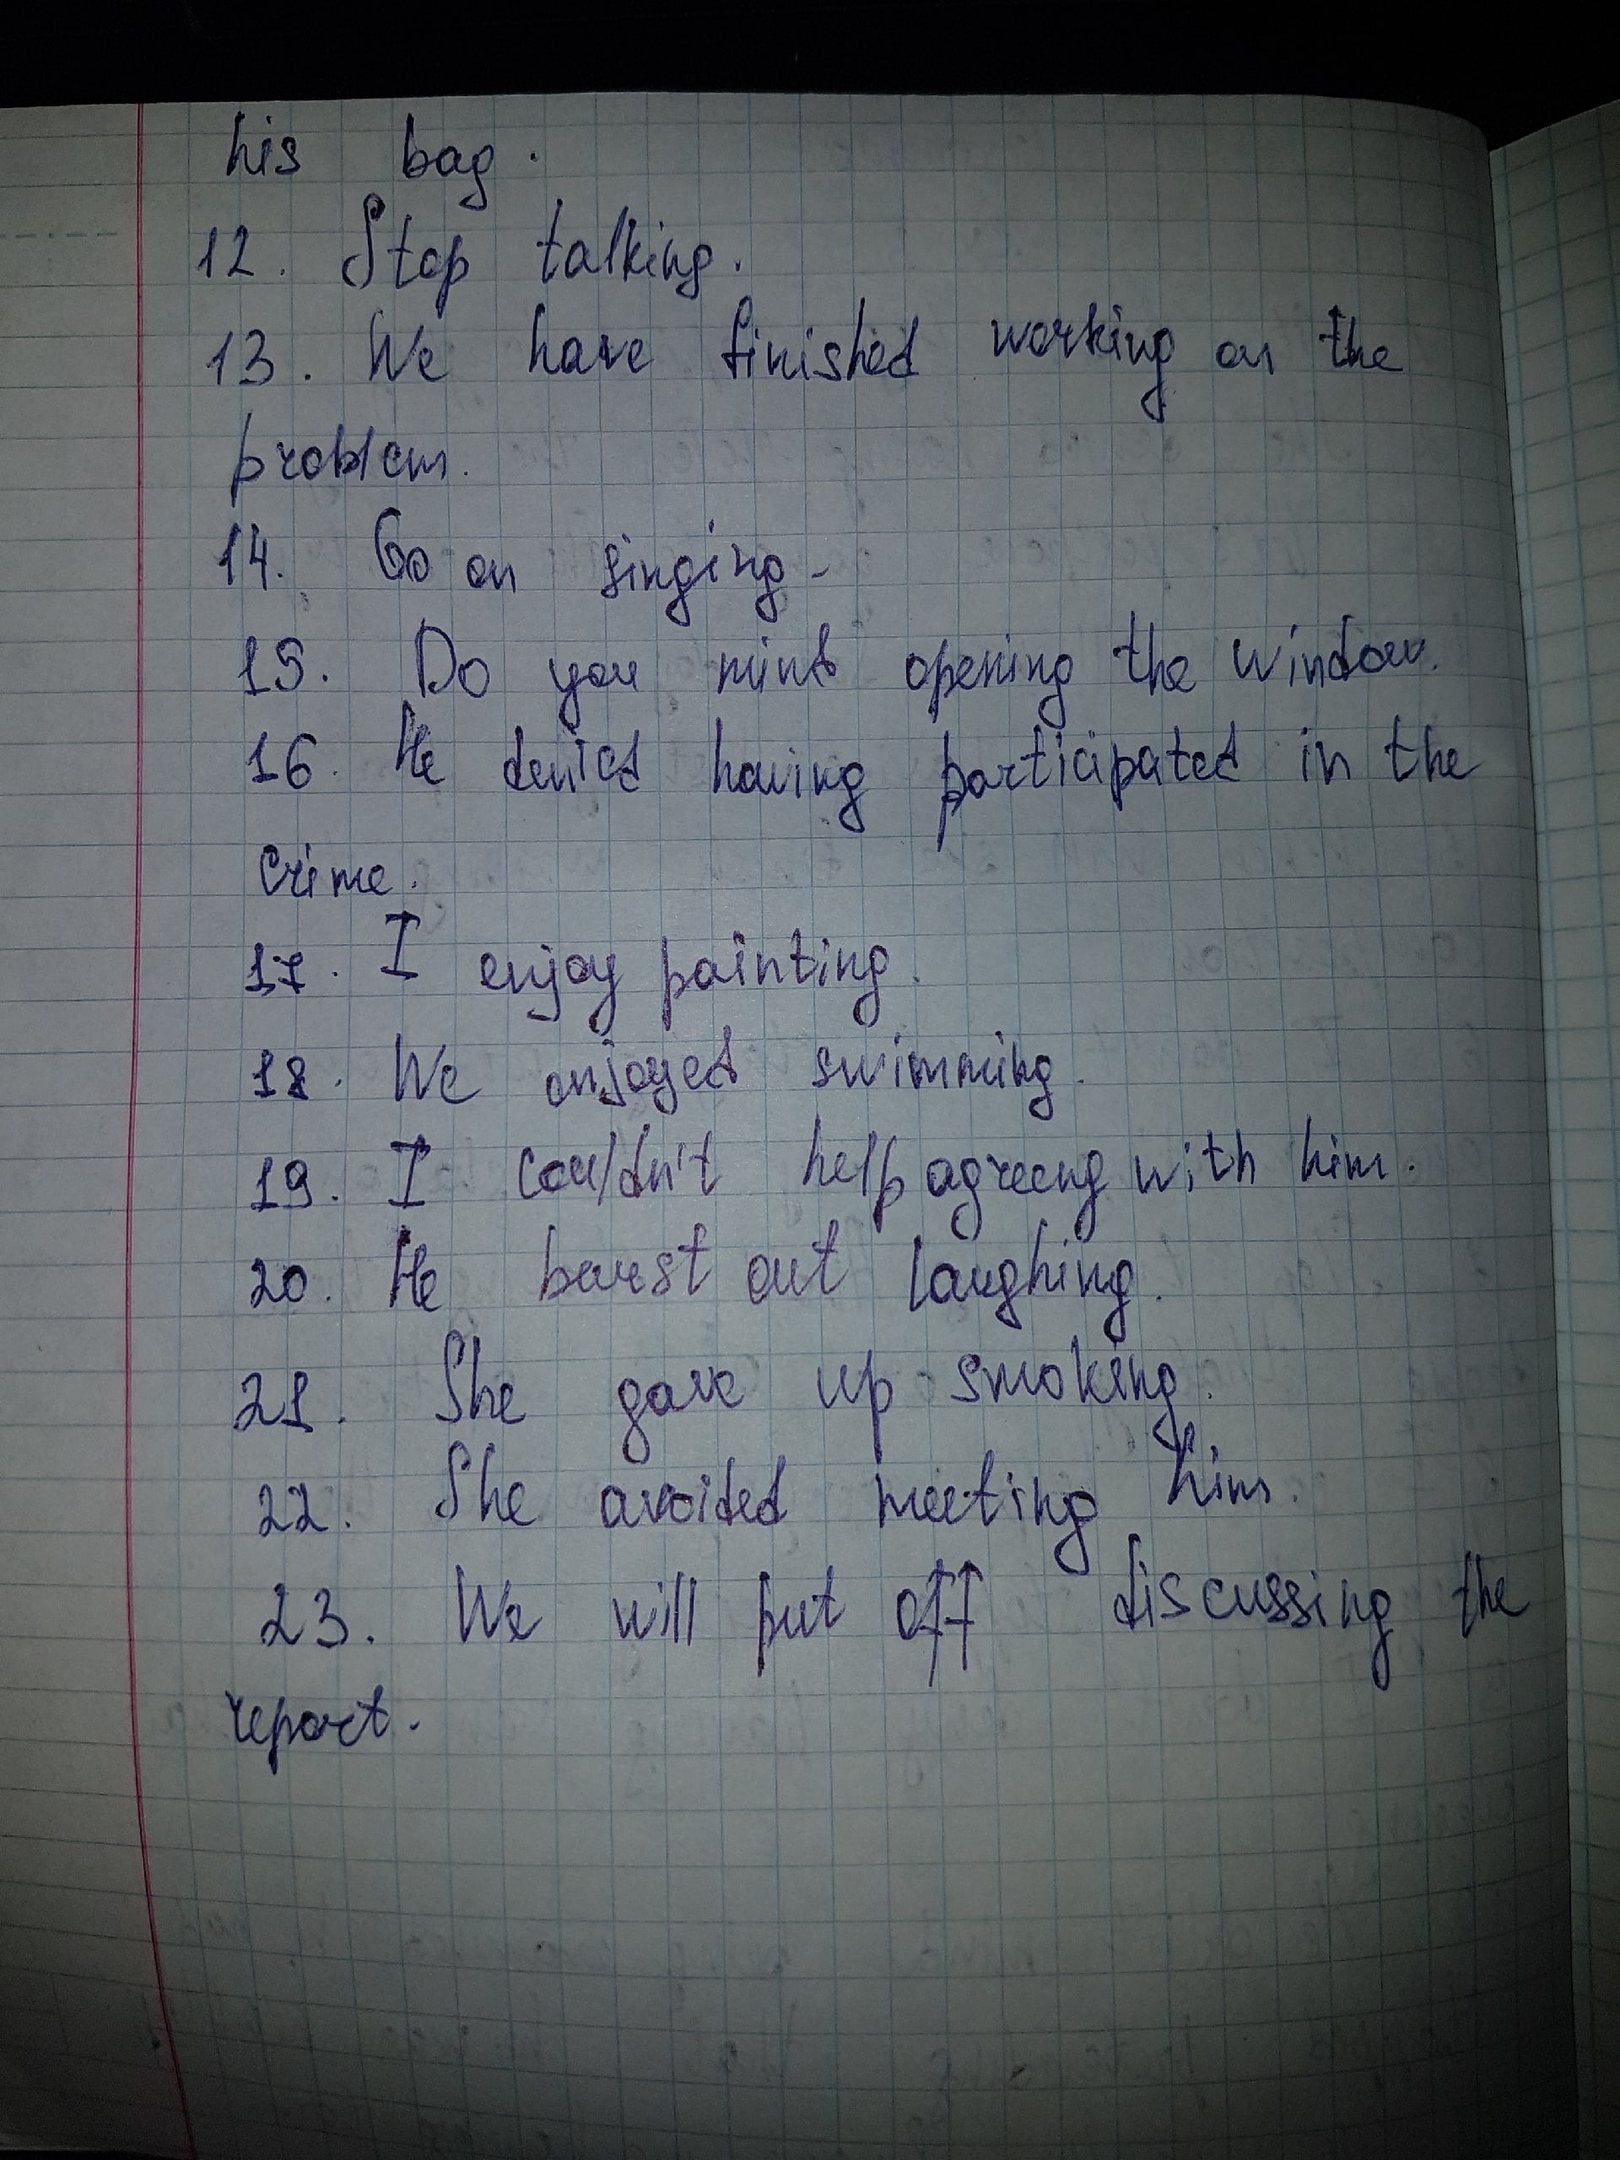 his bag.
12. Stop talking.
13. We have finished working on the
problem.
14. Go on singing.
15. Do you mind opening the window.
16. He denied having participated in the
crime.
17. I enjoy painting.
18. We enjoyed swimming.
19. I couldn't help agreeng with him.
20. He burst out laughing.
21. She gave up smoking.
22. She avoided meeting him.
23. We will put off discussing the
report.